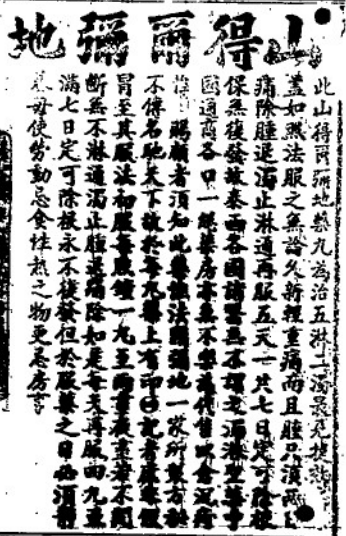 山得爾彌地
此山得爾彌地藥丸為治五淋二濁最見捷效
蓋如照法服之無論久新輕重痛而且腫只須兩
痛除腫退濁止淋通再服五天一共七日定可除根
保無後發故泰西各國諸醫無不讚為濁淋聖藥中
國通商各口一經藥房無不樂為代售
賜顧者須知此藥法國彌地一家所製方秘
不傳名馳天下故於每丸樽上有印記者庶
冒至其服法初服每點鐘一丸至兩晝夜若不間
斷無不淋通濁止腫退痛除如是每天再服四丸直
滿七日定可除根永不復發但於服藥之日必須靜
養毋使勞動忌食性熱之物更忌房事